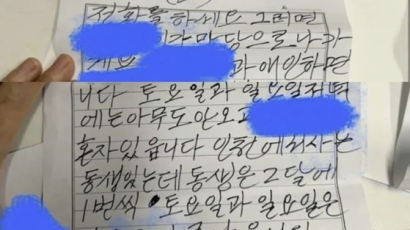 전화를하세요 그러면
다 마당으로 나카
게요 과 애인하면
니다 토요일과 일요일저녁
에는아무도안오고
혼자있읍니다 인천에 회사는
동생있는데 동생은 2달에
1번씩 토요일과 일요일은